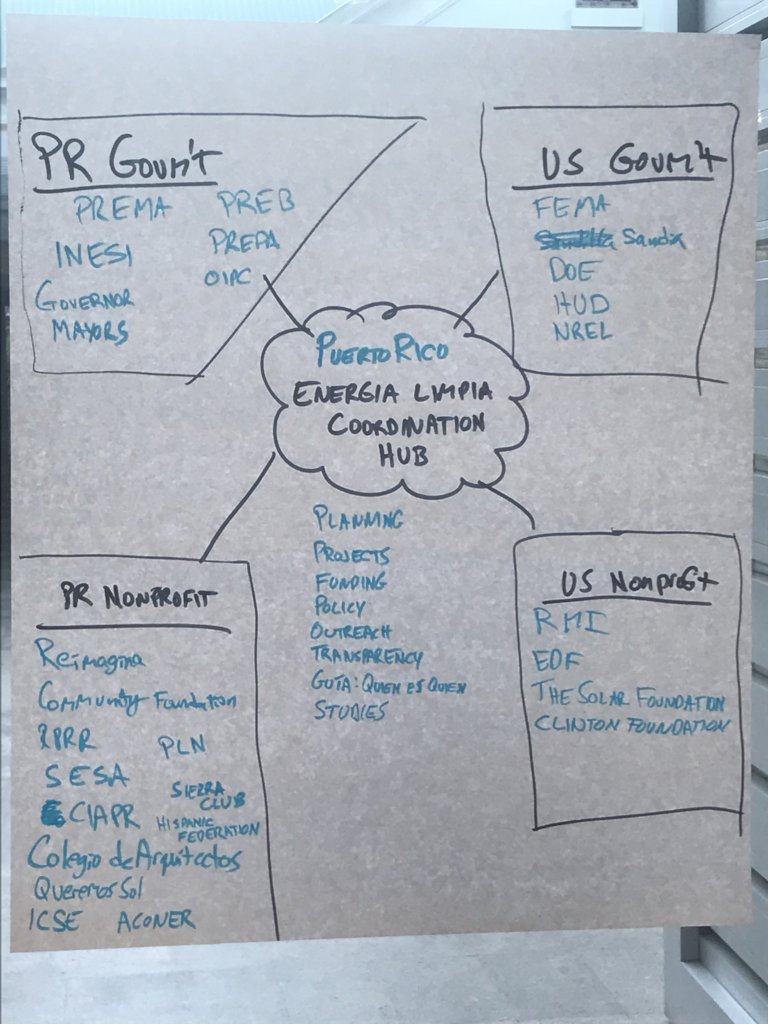 PR Govm't
PREMA PREB
INESI PREPA
OIPC
GOVERNOR
MAYORS
US Govm't
FEMA
Sandia
DOE
HUD
NREL
PUERTO RICO
ENERGIA LIMPIA
COORDINATION
HUB
PLANNING
PROJECTS
FUNDING
POLICY
OUTREACH
TRANSPARENCY
GUIA: QUIEN ES QUIEN
STUDIES
PR NONPROFIT
Reimagina
Community Foundation
PLN
SESA
SIERRA
CLUB
CIAPR
HISPANIC
FEDERATION
Colegio de Arquitectos
Queremos Sol
ICSE ACONER
US Nonprofit
RMI
EDF
THE SOLAR FOUNDATION
CLINTON FOUNDATION